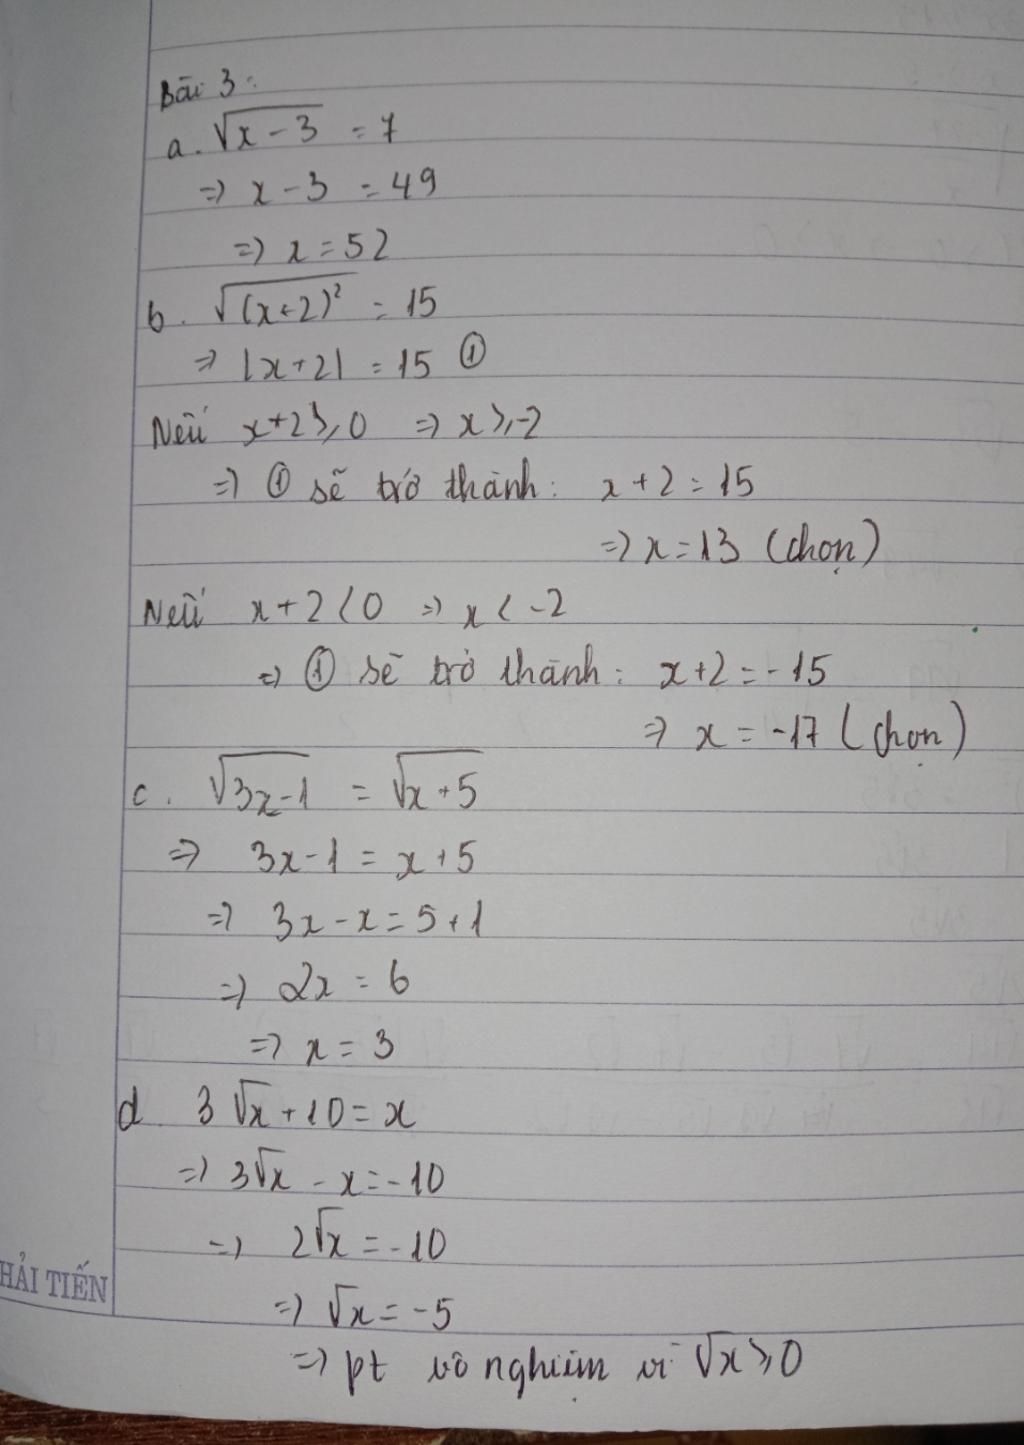 Bài 3:
a. √(x-3) = 7
=> x - 3 = 49
=> x = 52
b. √((x+2)²) = 15
=> |x+2| = 15 ①
Nếu x+2 ≥ 0 => x ≥ -2
=> ① sẽ trở thành: x + 2 = 15
=> x = 13 (chọn)
Nếu x+2 < 0 => x < -2
=> ① sẽ trở thành: x+2 = -15
=> x = -17 (chọn)
c. √(3x-1) = √(x+5)
=> 3x-1 = x+5
=> 3x - x = 5+1
=> 2x = 6
=> x = 3
d. 3√x + 10 = x
=> 3√x - x = -10
=> 2√x = -10
=> √x = -5
=> pt vô nghiệm vì √x ≥ 0
HẢI TIẾN